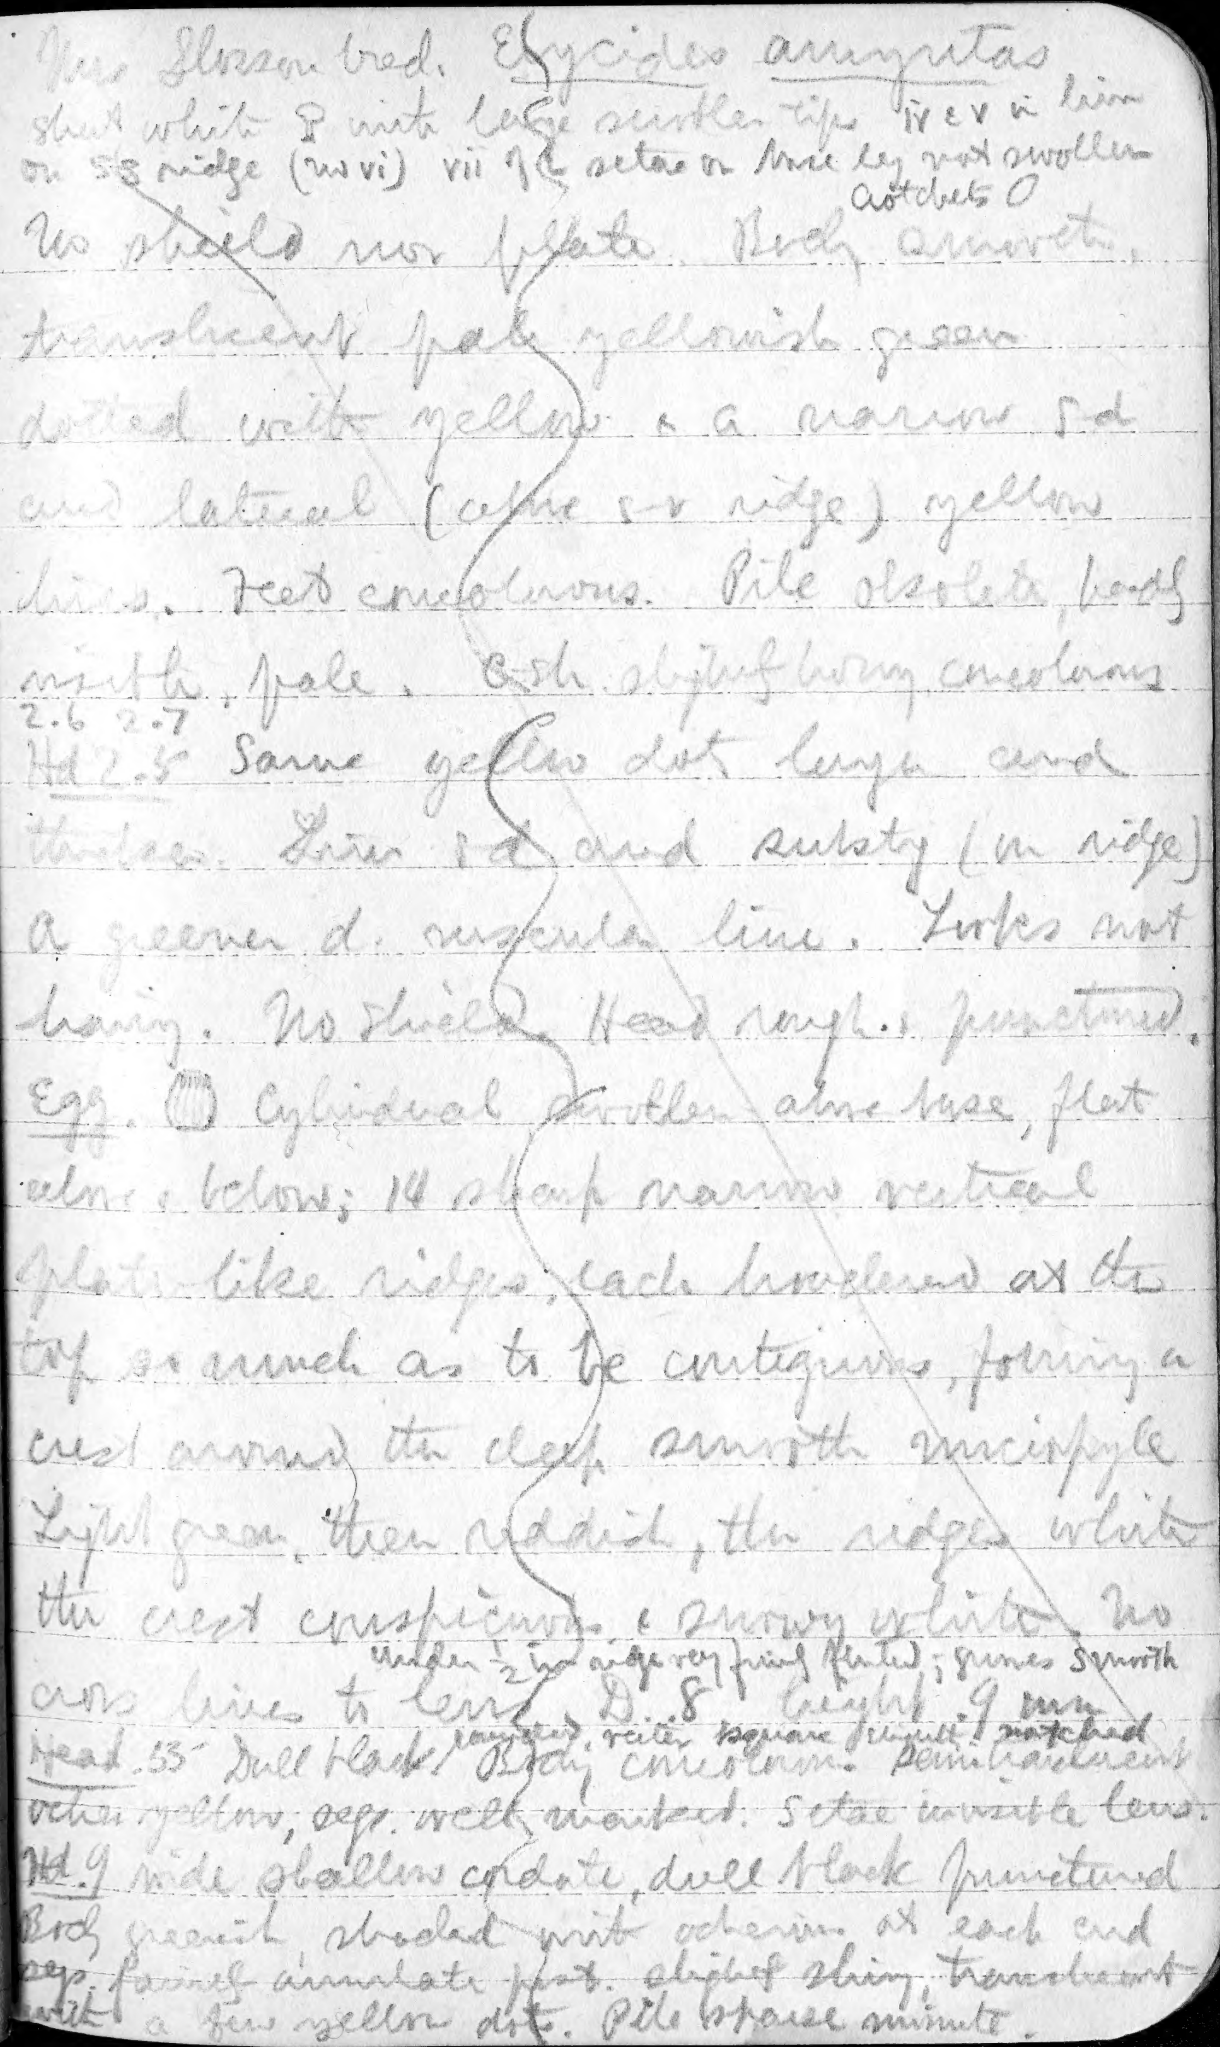 Mrs Slosson bred. Erycides amyntas
short white ♀ with large swollen tips iv & v in line
on ss ridge (no vi) vii of 2 setae on base leg not swollen
Crotchets 0
No shield nor plate. Body smooth,
translucent pale yellowish green
dotted with yellow & a narrow s-d
and lateral (above s-v ridge) yellow
lines. Feet concolorous. Pile obsolete, hardly
visible, pale. C-sh. slightly horny concolorous
2.6 2.7
Hd 2.5 Same yellow dots larger and
thicker. Lines s-d and substig (on ridge)
a greener d. vascular line. Looks not
hairy. No shield. Head rough & punctured.
Egg. Cylindrical swollen above base, flat
above & below; 14 sharp narrow vertical
plate-like ridges, each broadened at the
top so much as to be contiguous, forming a
crest around the deep smooth micropyle
Light green, then reddish, the ridges white
the crest conspicuous & snowy white. No
Under ½ in ridge very finely fluted; grooves smooth
cross lines to lens. D. .8 height .9 mm
rounded, square notched
Head .55 Dull black. Body concolorous. Semitranslucent
ocher yellow, segs. well marked. Setae invisible lens.
Hd .9 wide shallow cordate, dull black punctured
Body greenish shaded with ocherous at each end
segs. faintly annulate post. slightly shiny, translucent
with a few yellow dots. Pile sparse minute.